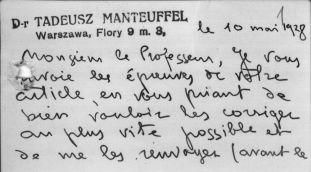 D-r TADEUSZ MANTEUFFEL
Warszawa, Flory 9 m. 3,
le 10 mai 1928
Monsieur le Professeur, Je vous
envoie les épreuves de votre
article en vous priant de
bien vouloir les corriger
au plus vite possible et
de me les renvoyer (avant le